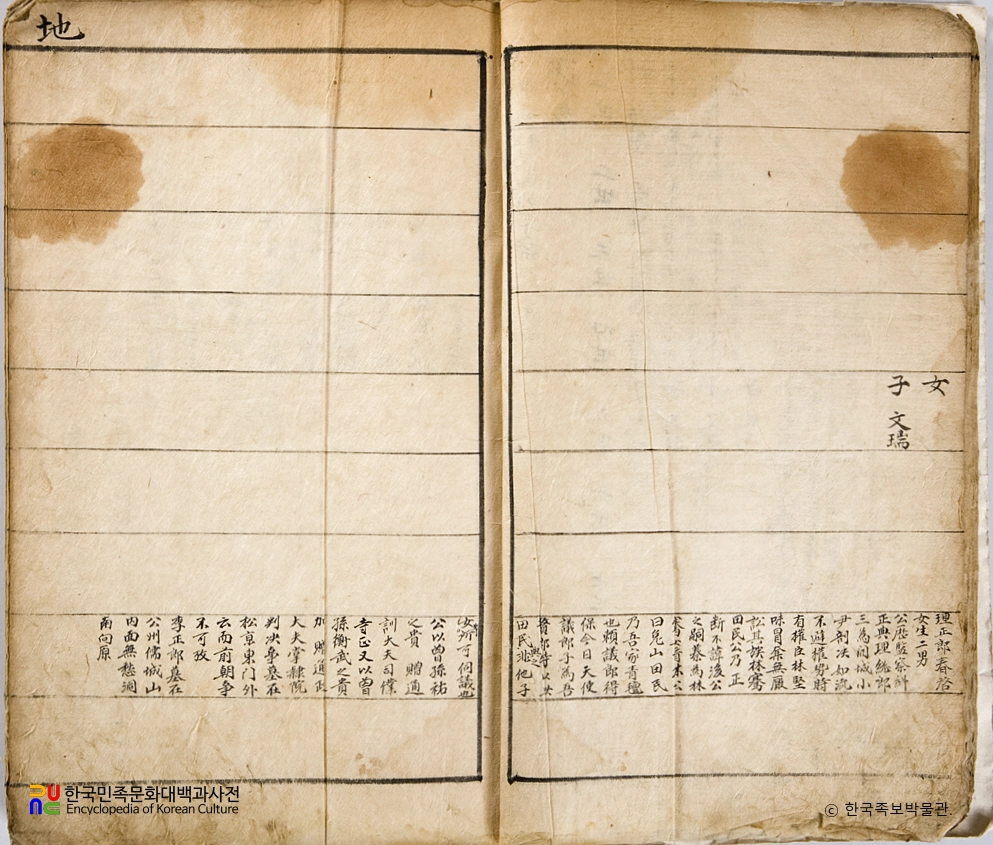 地
女
子 文瑞
理正郎春啓
女生二男
公歷監察刑
正典理總郎
三爲閣城小
尹剖决如流
不避權勢時
有權臣林堅
味冒庶無厭
訟其族林騫
田民公乃正
断不諱後公
之嗣
曰兔山田民
乃吾家青氊
也賴議郎得
保今日天使
議郎子爲吾
田民非他子
汝所可伺議也
公以曾孫祐
之貴 贈通
訓大夫司僕
寺正又以曾
孫衡武之貴
加 贈通政
大夫掌隷院
判决事墓在
松京東门外
云而前朝事
不可攷
李正郎墓在
公州儒城山
内面無愁洞
南向原
한국민족문화대백과사전
Encyclopedia of Korean Culture
ⓒ 한국족보박물관